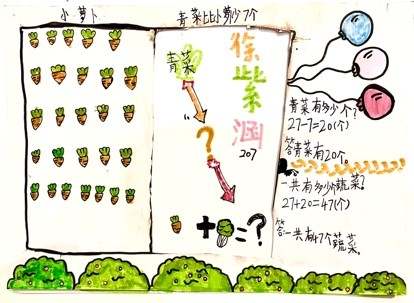 小萝卜
青菜比小萝卜少7个
青菜
?
徐紫涵
207
+ = ?
青菜有多少个?
27-7=20(个)
答:青菜有20个。
一共有多少蔬菜?
27+20=47(个)
答:一共有47个蔬菜。